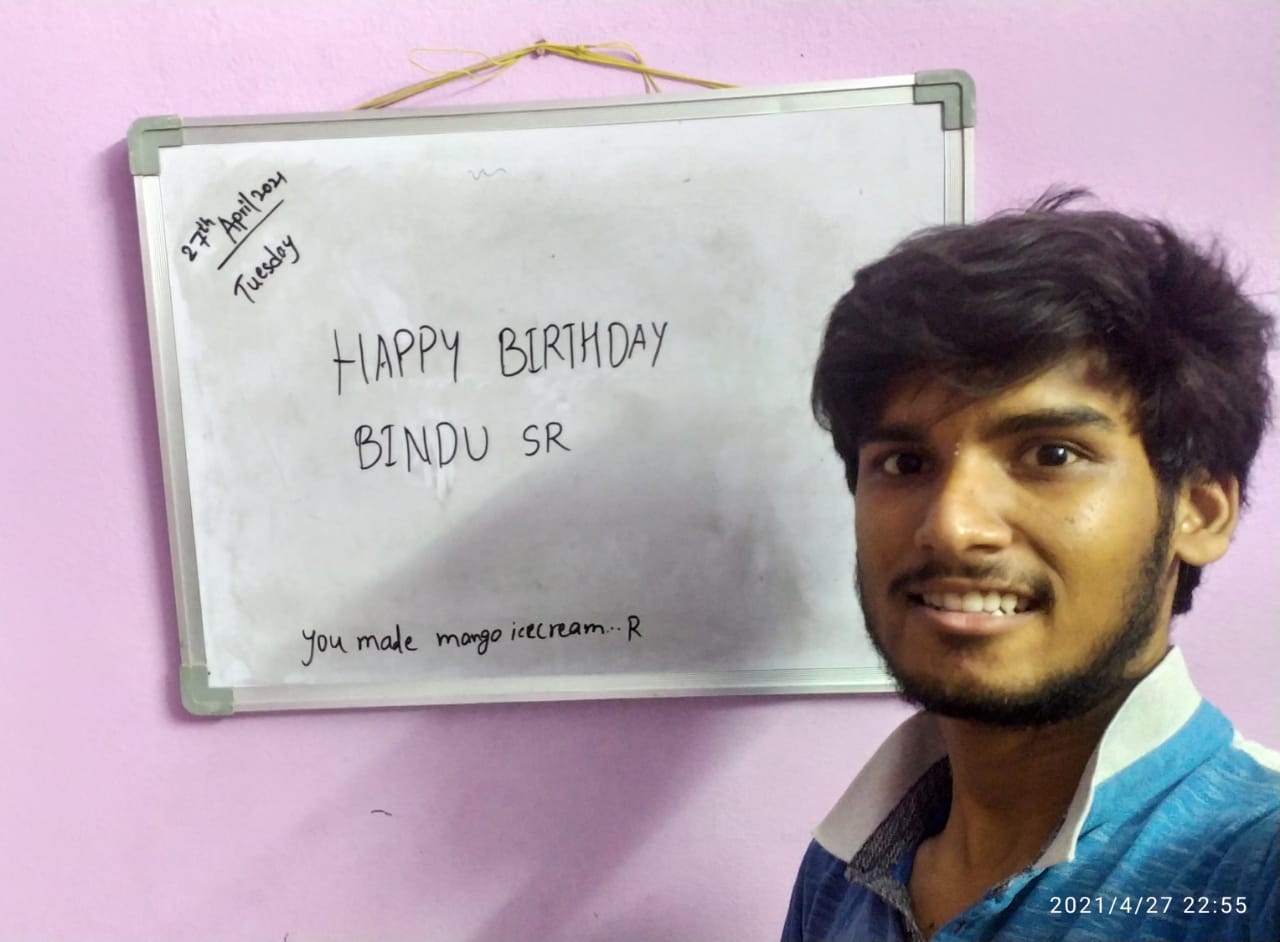 27th April 2021
Tuesday
HAPPY BIRTHDAY
BINDU SR
you made mango icecream... R
2021/4/27 22:55